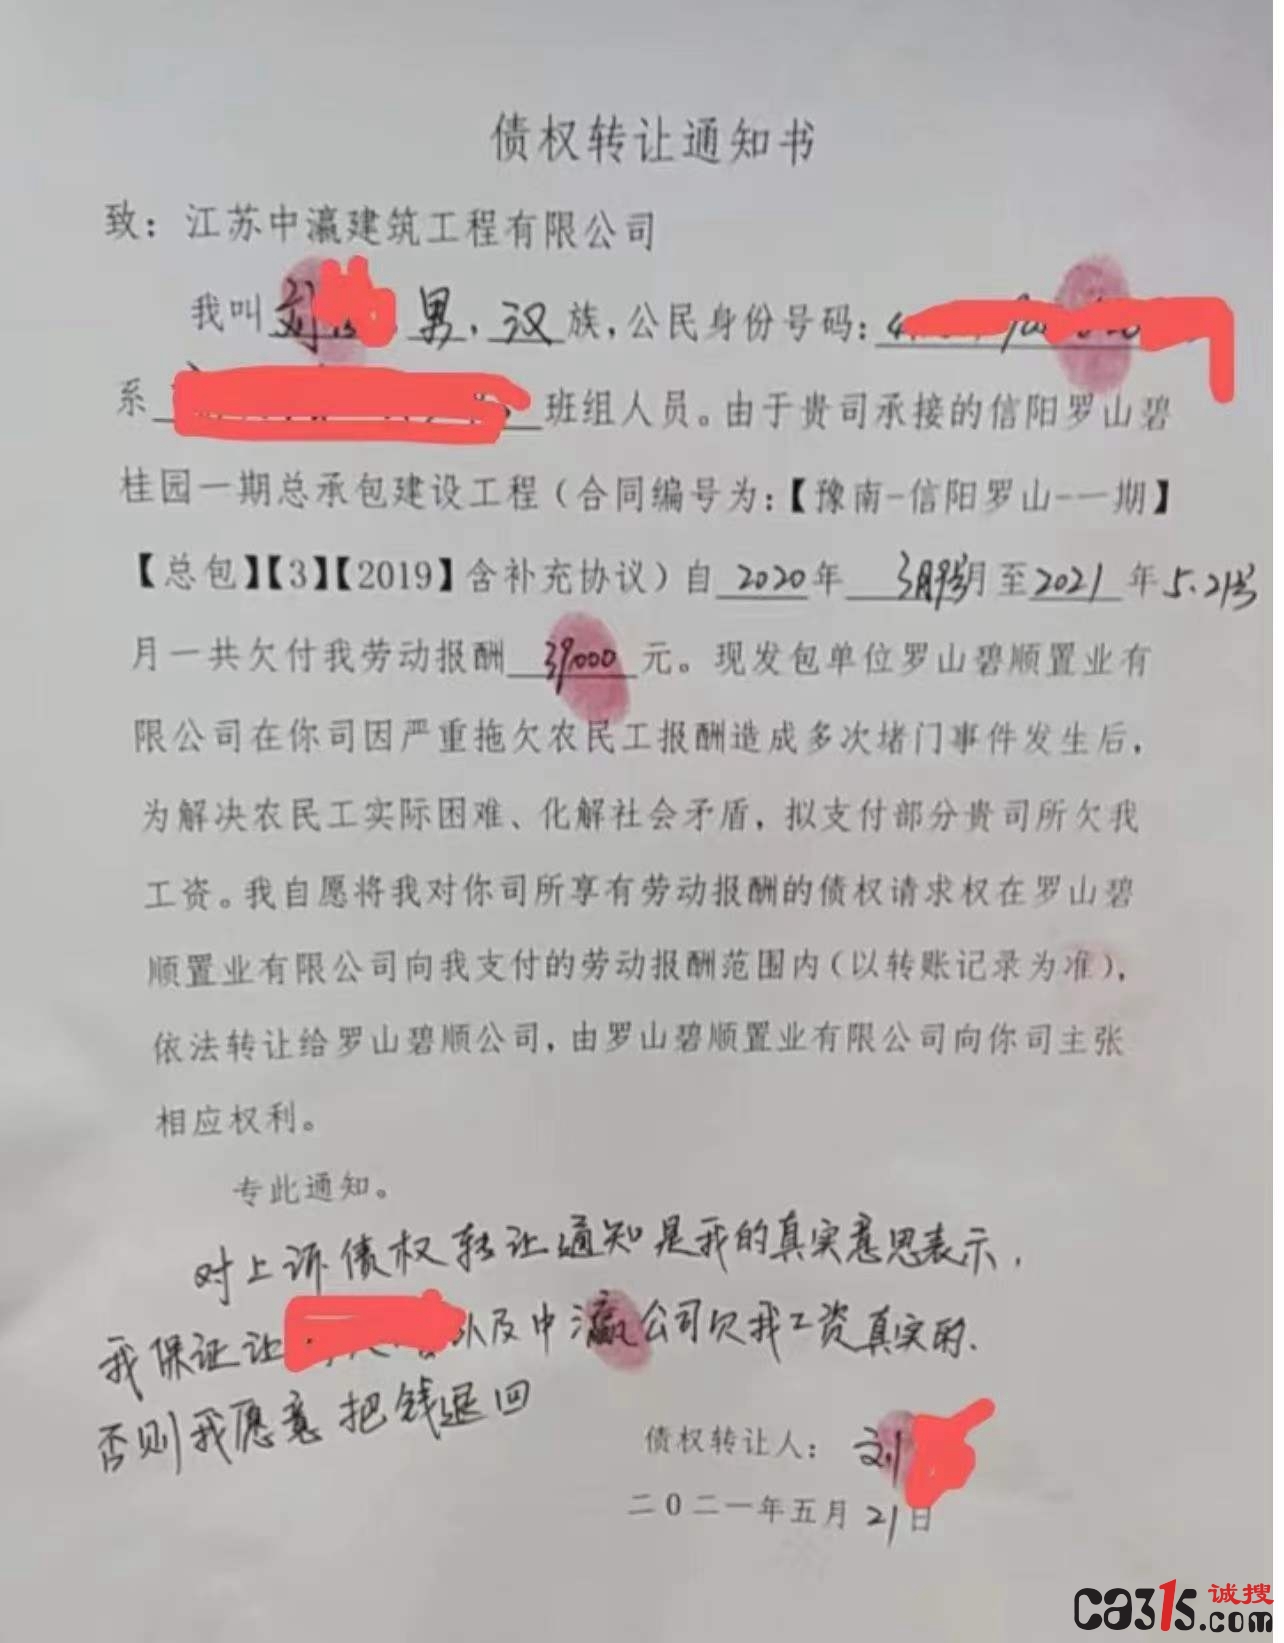 债权转让通知书
致：江苏中瀛建筑工程有限公司
我叫刘 男，汉族，公民身份号码：
系 班组人员。由于贵司承接的信阳罗山碧
桂园一期总承包建设工程（合同编号为：【豫南-信阳罗山-一期】
【总包】【3】【2019】含补充协议）自2020年 3月9号月至2021年5.21号
月一共欠付我劳动报酬39000元。现发包单位罗山碧顺置业有
限公司在你司因严重拖欠农民工报酬造成多次堵门事件发生后，
为解决农民工实际困难、化解社会矛盾，拟支付部分贵司所欠我
工资。我自愿将我对你司所享有劳动报酬的债权请求权在罗山碧
顺置业有限公司向我支付的劳动报酬范围内（以转账记录为准），
依法转让给罗山碧顺公司，由罗山碧顺置业有限公司向你司主张
相应权利。
专此通知。
对上诉债权转让通知是我的真实意思表示，
我保证让 队及中瀛公司欠我工资真实的.
否则我愿意把钱退回
债权转让人：刘
二〇二一年五月21日
ca315诚搜
.com